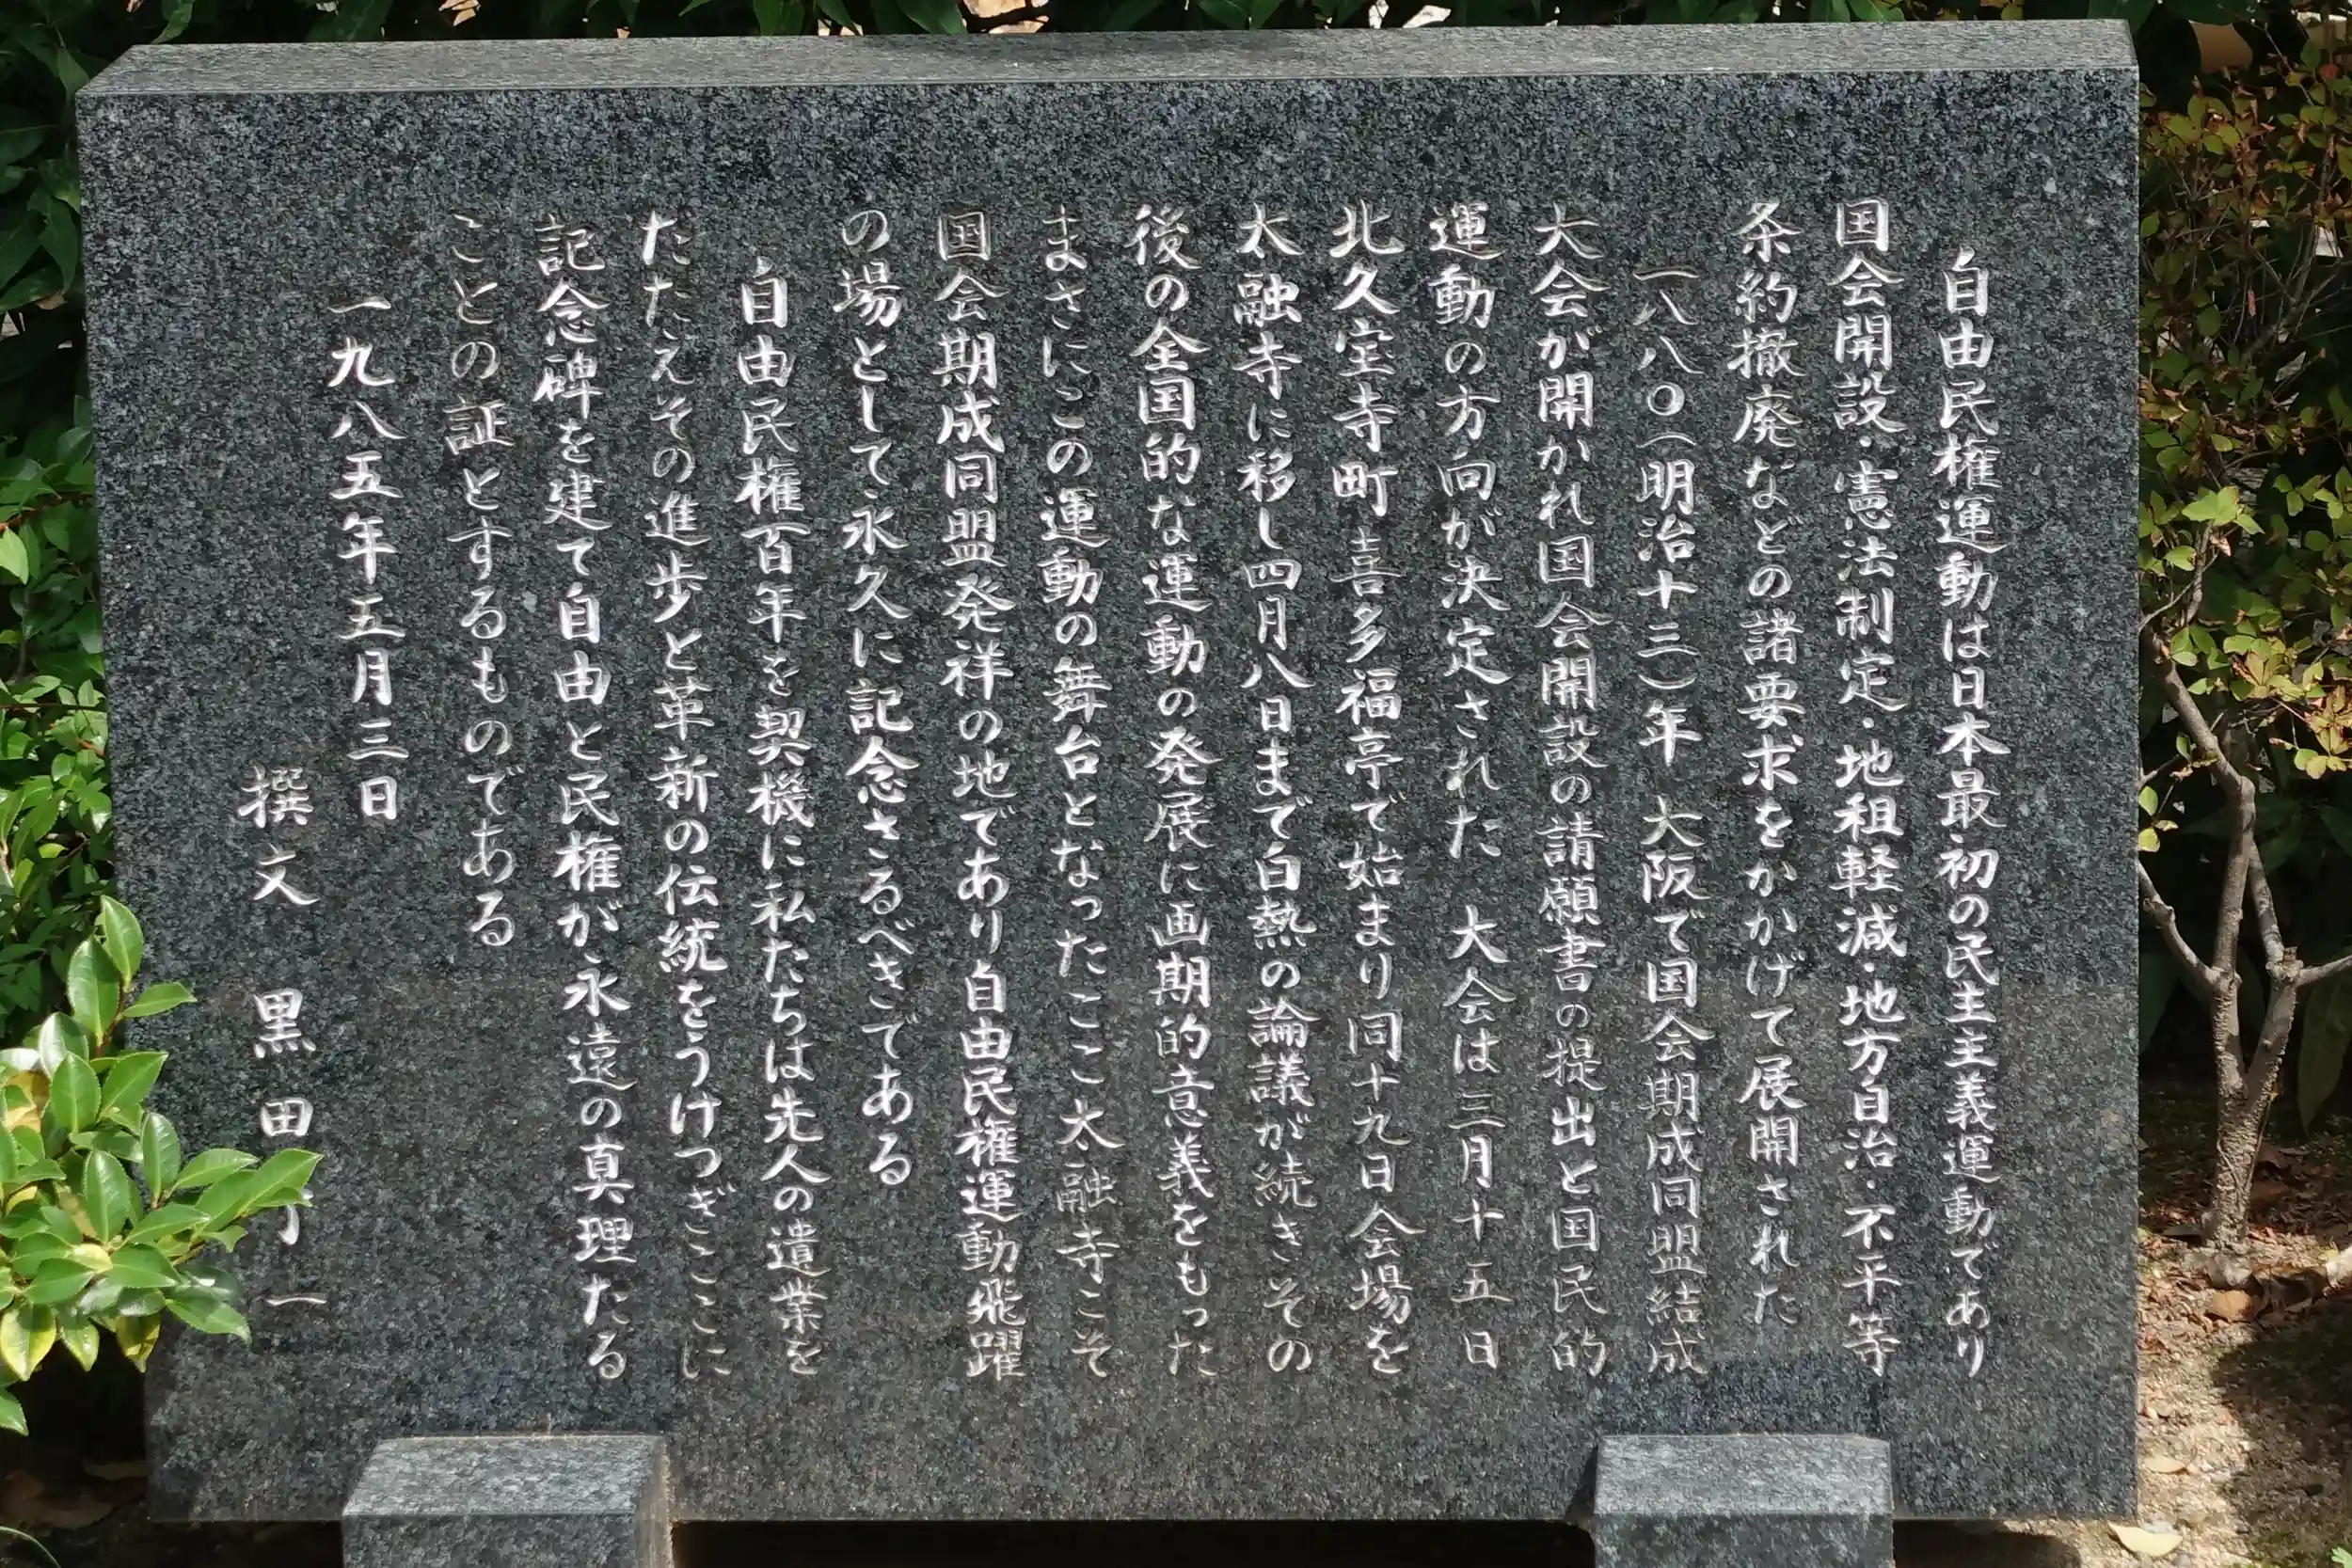 自由民権運動は日本最初の民主主義運動であり
国会開設・憲法制定・地租軽減・地方自治・不平等
条約撤廃などの諸要求をかかげて展開された
一八八〇(明治十三)年 大阪で国会期成同盟結成
大会が開かれ国会開設の請願書の提出と国民的
運動の方向が決定された 大会は三月十五日
北久宝寺町喜多福亭で始まり同十九日会場を
太融寺に移し四月八日まで白熱の論議が続きその
後の全国的な運動の発展に画期的意義をもった
まさにこの運動の舞台となったここ太融寺こそ
国会期成同盟発祥の地であり自由民権運動飛躍
の場として永久に記念さるべきである
自由民権百年を契機に私たちは先人の遺業を
たたえその進歩と革新の伝統をうけつぎここに
記念碑を建て自由と民権が永遠の真理たる
ことの証とするものである
一九八五年五月三日
撰文 黒田 一